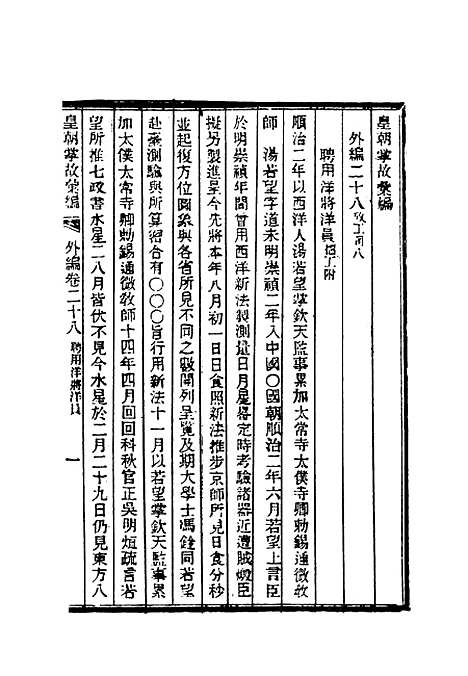 皇朝掌故彙編
外編二十八
聘用洋將洋員
順治二年以西洋人湯若望掌欽天監事累加太常寺太僕寺卿勅錫通微敎
師 湯若望字道未明崇禎二年入中國〇國朝順治二年六月若望上言臣
於明崇禎年間曾用西洋新法製測量日月星晷定時考驗諸器近遭賊燬臣
擬另製進呈今先將本年八月初一日日食照新法推步京師所見日食分秒
並起復方位圖象與各省所見不同之數開列呈覽及期大學士馮銓同若望
赴臺測驗與所算密合有〇〇〇旨行用新法十一月以若望掌欽天監事累
加太僕太常寺卿勅錫通微敎師十四年四月回回科秋官正吳明烜疏言若
望所推七政書水星二八月皆伏不見今水星於二月二十九日仍見東方八
皇朝掌故彙編 外編卷二十八 聘用洋將洋員 一